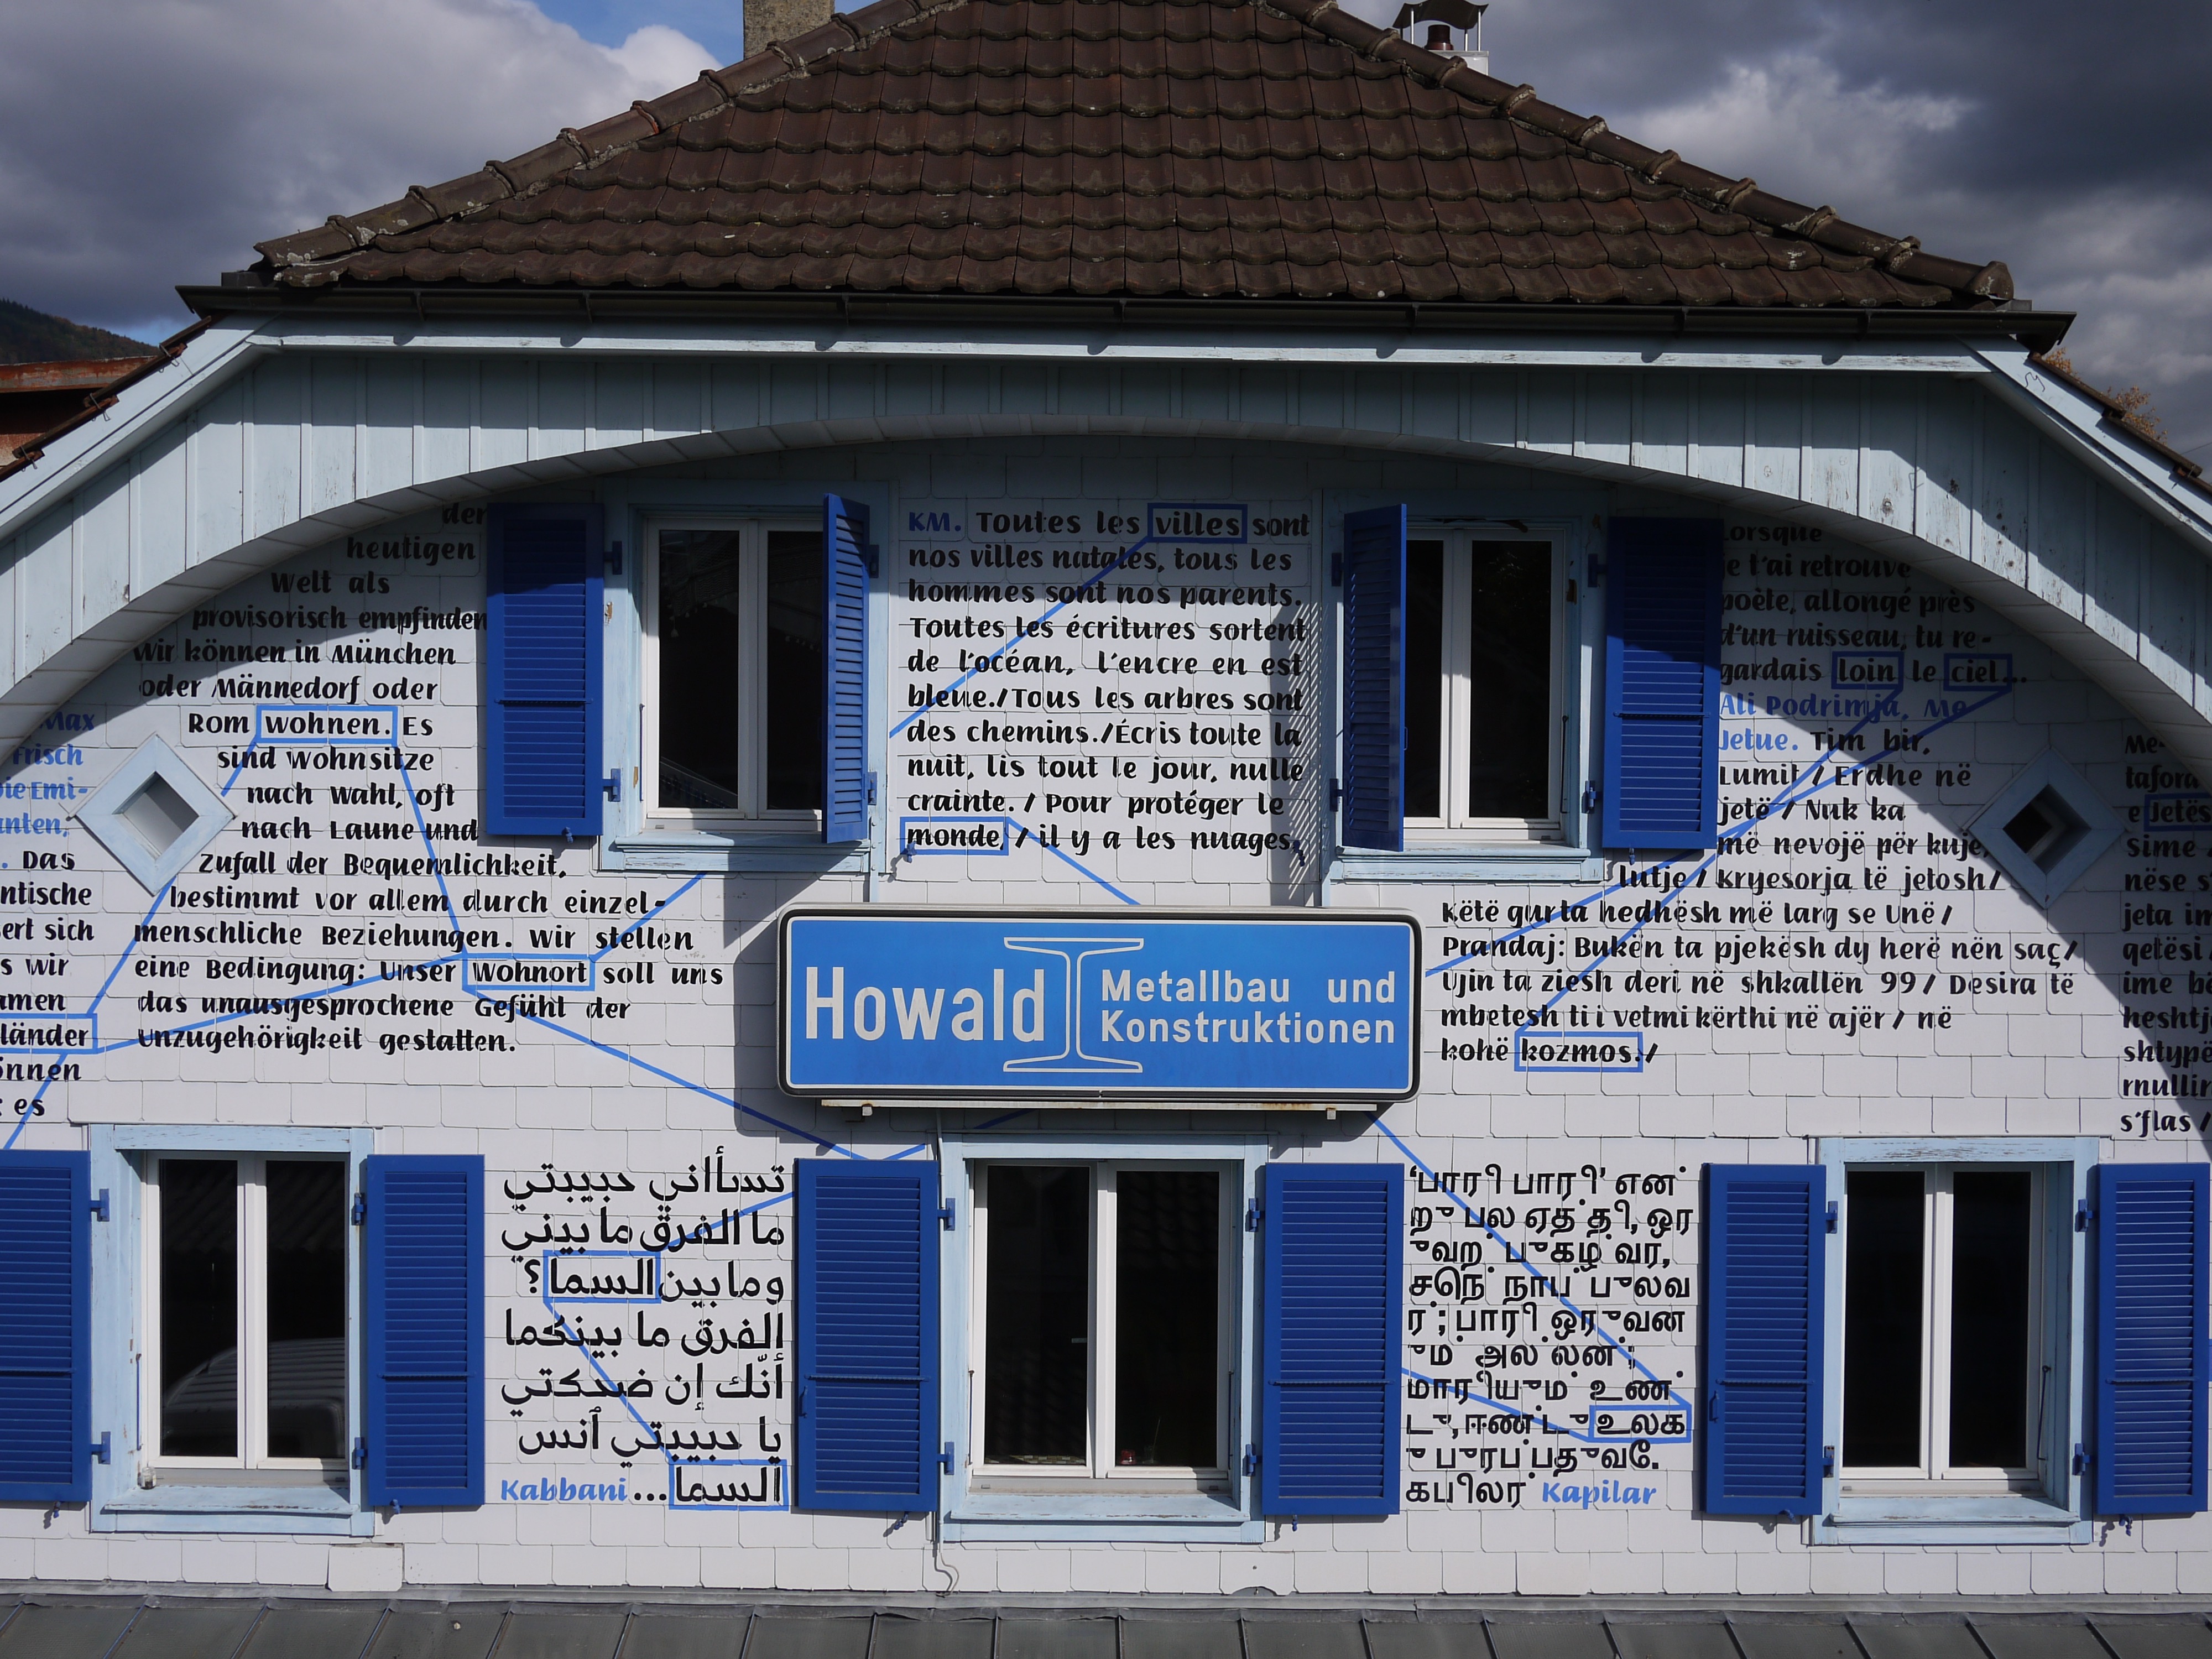 der
heutigen
Welt als
provisorisch empfinden
wir können in München
oder Männedorf oder
Rom wohnen. Es
sind Wohnsitze
nach Wahl, oft
nach Laune und
Zufall der Bequemlichkeit,
bestimmt vor allem durch einzel-
menschliche Beziehungen. Wir stellen
eine Bedingung: Unser Wohnort soll uns
das unausgesprochene Gefühl der
Unzugehörigkeit gestatten.
Max
Frisch
Die Emi-
. Das
sich
wir
länder
es
KM. Toutes les villes sont
nos villes natales, tous les
hommes sont nos parents.
Toutes les écritures sortent
de l'océan, l'encre en est
bleue./Tous les arbres sont
des chemins./Écris toute la
nuit, lis tout le jour, nulle
crainte. / Pour protéger le
monde, / il y a les nuages.
Lorsque
je t'ai retrouvé
poète, allongé près
d'un ruisseau, tu re-
gardais loin le ciel...
Ali Podrimja, Me
Jetue. Tim bir,
Lumit / Erdhe në
jetë / Nuk ka
më nevojë për kujë,
lutje / Kryesorja të jetosh/
Këtë gur ta hedhësh më larg se Unë /
Prandaj: Bukën ta pjekësh dy herë nën saç/
Ujin ta ziesh deri në shkallën 99 / Desira të
mbetesh ti i vetmi kërthi në ajër / në
kohë kozmos./
Me-
tafora
e Jetës
sime
nëse s'
jeta im
qetësi
ime
s'flas /
Howald Metallbau und
Konstruktionen
تسألني حبيبتي
ما الفرق ما بيني
وما بين السما؟
الفرق ما بينكما
أنّك إن ضحكتي
يا حبيبتي أنس
السما... Kabbani
‘பாரி பாரி’ என்
று பல ஏத்தி, ஒர
ுவற் புகழ் வர்,
செந் நாப் புலவ
ர் ; பாரி ஒருவன
ும் அல்லன் ;
மாரியும் உண்
டு, ஈண்டு உலக
ு புரப்பதுவே.
கபிலர் Kapilar